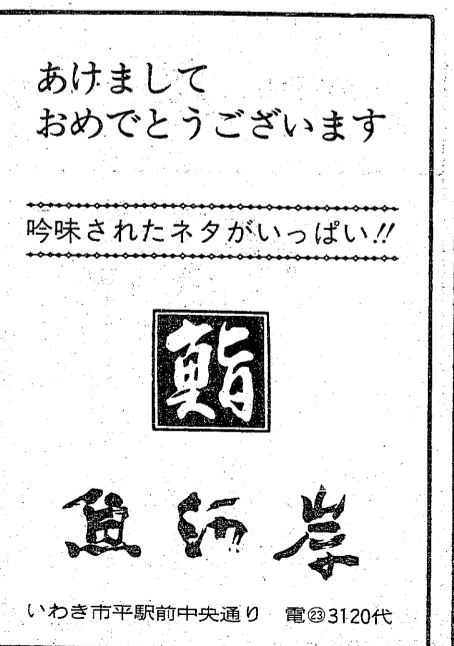 あけまして
おめでとうございます
吟味されたネタがいっぱい!!
鮨
魚河岸
いわき市平駅前中央通り 電㉓3120代